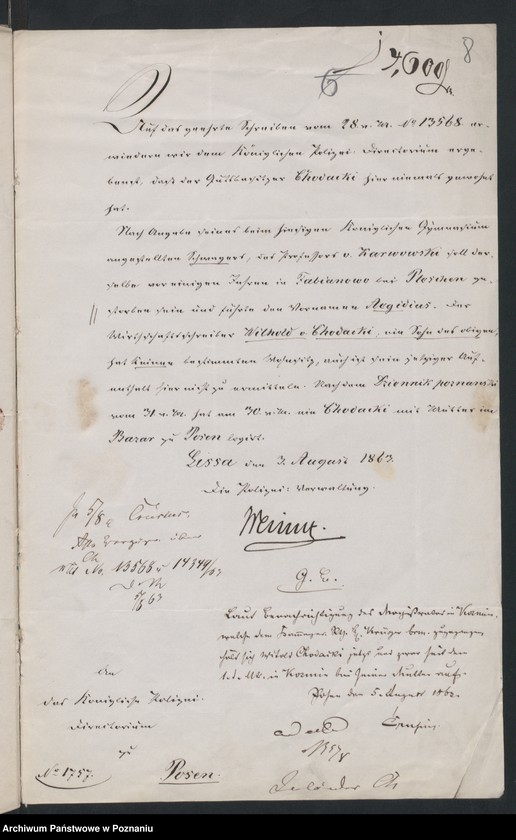 8
6
Auf das geehrte Schreiben vom 28 v. Mt. No 13568 er-
wiedern wir dem Königlichen Polizei-Directorium erge-
benst, daß der Gutsbesitzer Chodacki hier niemals gewohnt
hat.
Nach Angabe seines beim hiesigen Königlichen Gymnasium
angestellten Schwagers, des Professors v. Karwowski soll der-
selbe vor einigen Jahren in Fabianowo bei Pleschen ge-
storben sein und führte den Vornamen Aegidius. Der
Wirthschaftsschreiber Withold v. Chodacki, ein Sohn des obigen,
hat keinen bestimmten Wohnsitz, auch ist sein jetziger Auf-
enthalt hier nicht zu ermitteln. Nach dem Dziennik poznański
vom 31 v. Mt. hat am 30 v. Mt. ein Chodacki mit Mutter im
Bazar zu Posen logirt.
Lissa den 3. August 1863.
Die Polizei-Verwaltung.
5/8
No. 13568 14349/63
63
Laut Benachrichtigung des Magistrats in Kosmin,
welche dem
hält sich Witold Chodacki jetzt und zwar seit dem
in Kosmin bei seiner Mutter auf.
Posen den 5. August 1863.
An
das Königliche Polizei-
Directorium
zu
No 1757. Posen.
Archiwum Państwowe w Poznaniu